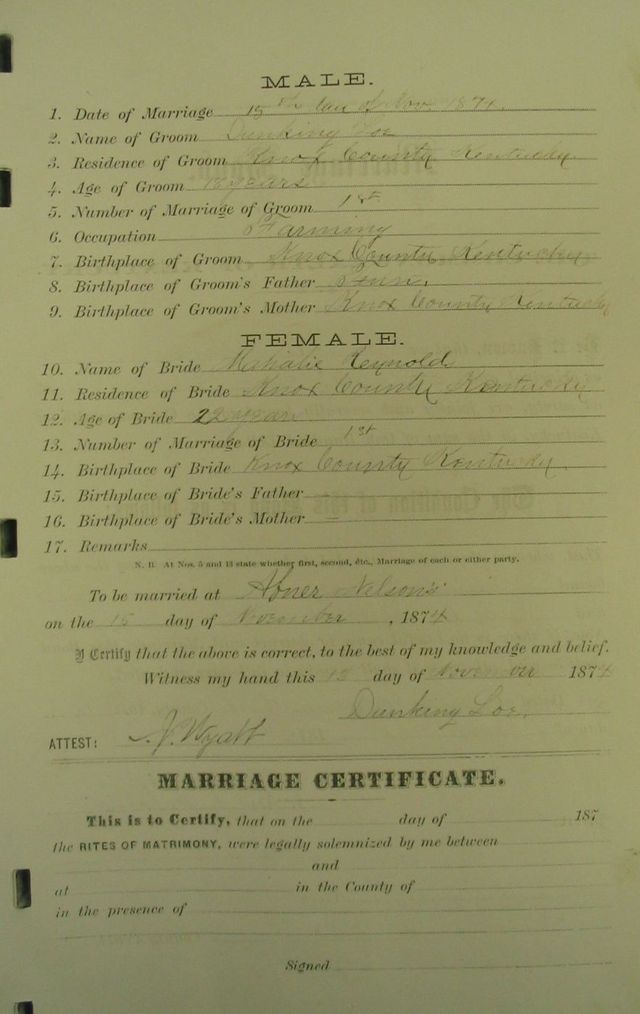 MALE.
1. Date of Marriage 15th day of Nov. 1874.
2. Name of Groom Dunking Loe
3. Residence of Groom Knox County Kentucky.
4. Age of Groom years
5. Number of Marriage of Groom 1st
6. Occupation Farming
7. Birthplace of Groom Knox County Kentucky
8. Birthplace of Groom's Father Tenn.
9. Birthplace of Groom's Mother Knox County Kentucky
FEMALE.
10. Name of Bride Mahalie Reynolds
11. Residence of Bride Knox County Kentucky
12. Age of Bride 22 years
13. Number of Marriage of Bride 1st
14. Birthplace of Bride Knox County Kentucky.
15. Birthplace of Bride's Father
16. Birthplace of Bride's Mother —
17. Remarks
N. B. At Nos. 5 and 13 state whether first, second, &c., Marriage of each or either party.
To be married at Abner Nelson's
on the 15 day of November, 1874
I Certify that the above is correct, to the best of my knowledge and belief.
Witness my hand this 15 day of November 1874
Dunking Loe.
ATTEST: J. Wyatt
MARRIAGE CERTIFICATE.
This is to Certify, that on the day of 187
the RITES OF MATRIMONY, were legally solemnized by me between
and
at in the County of
in the presence of
Signed